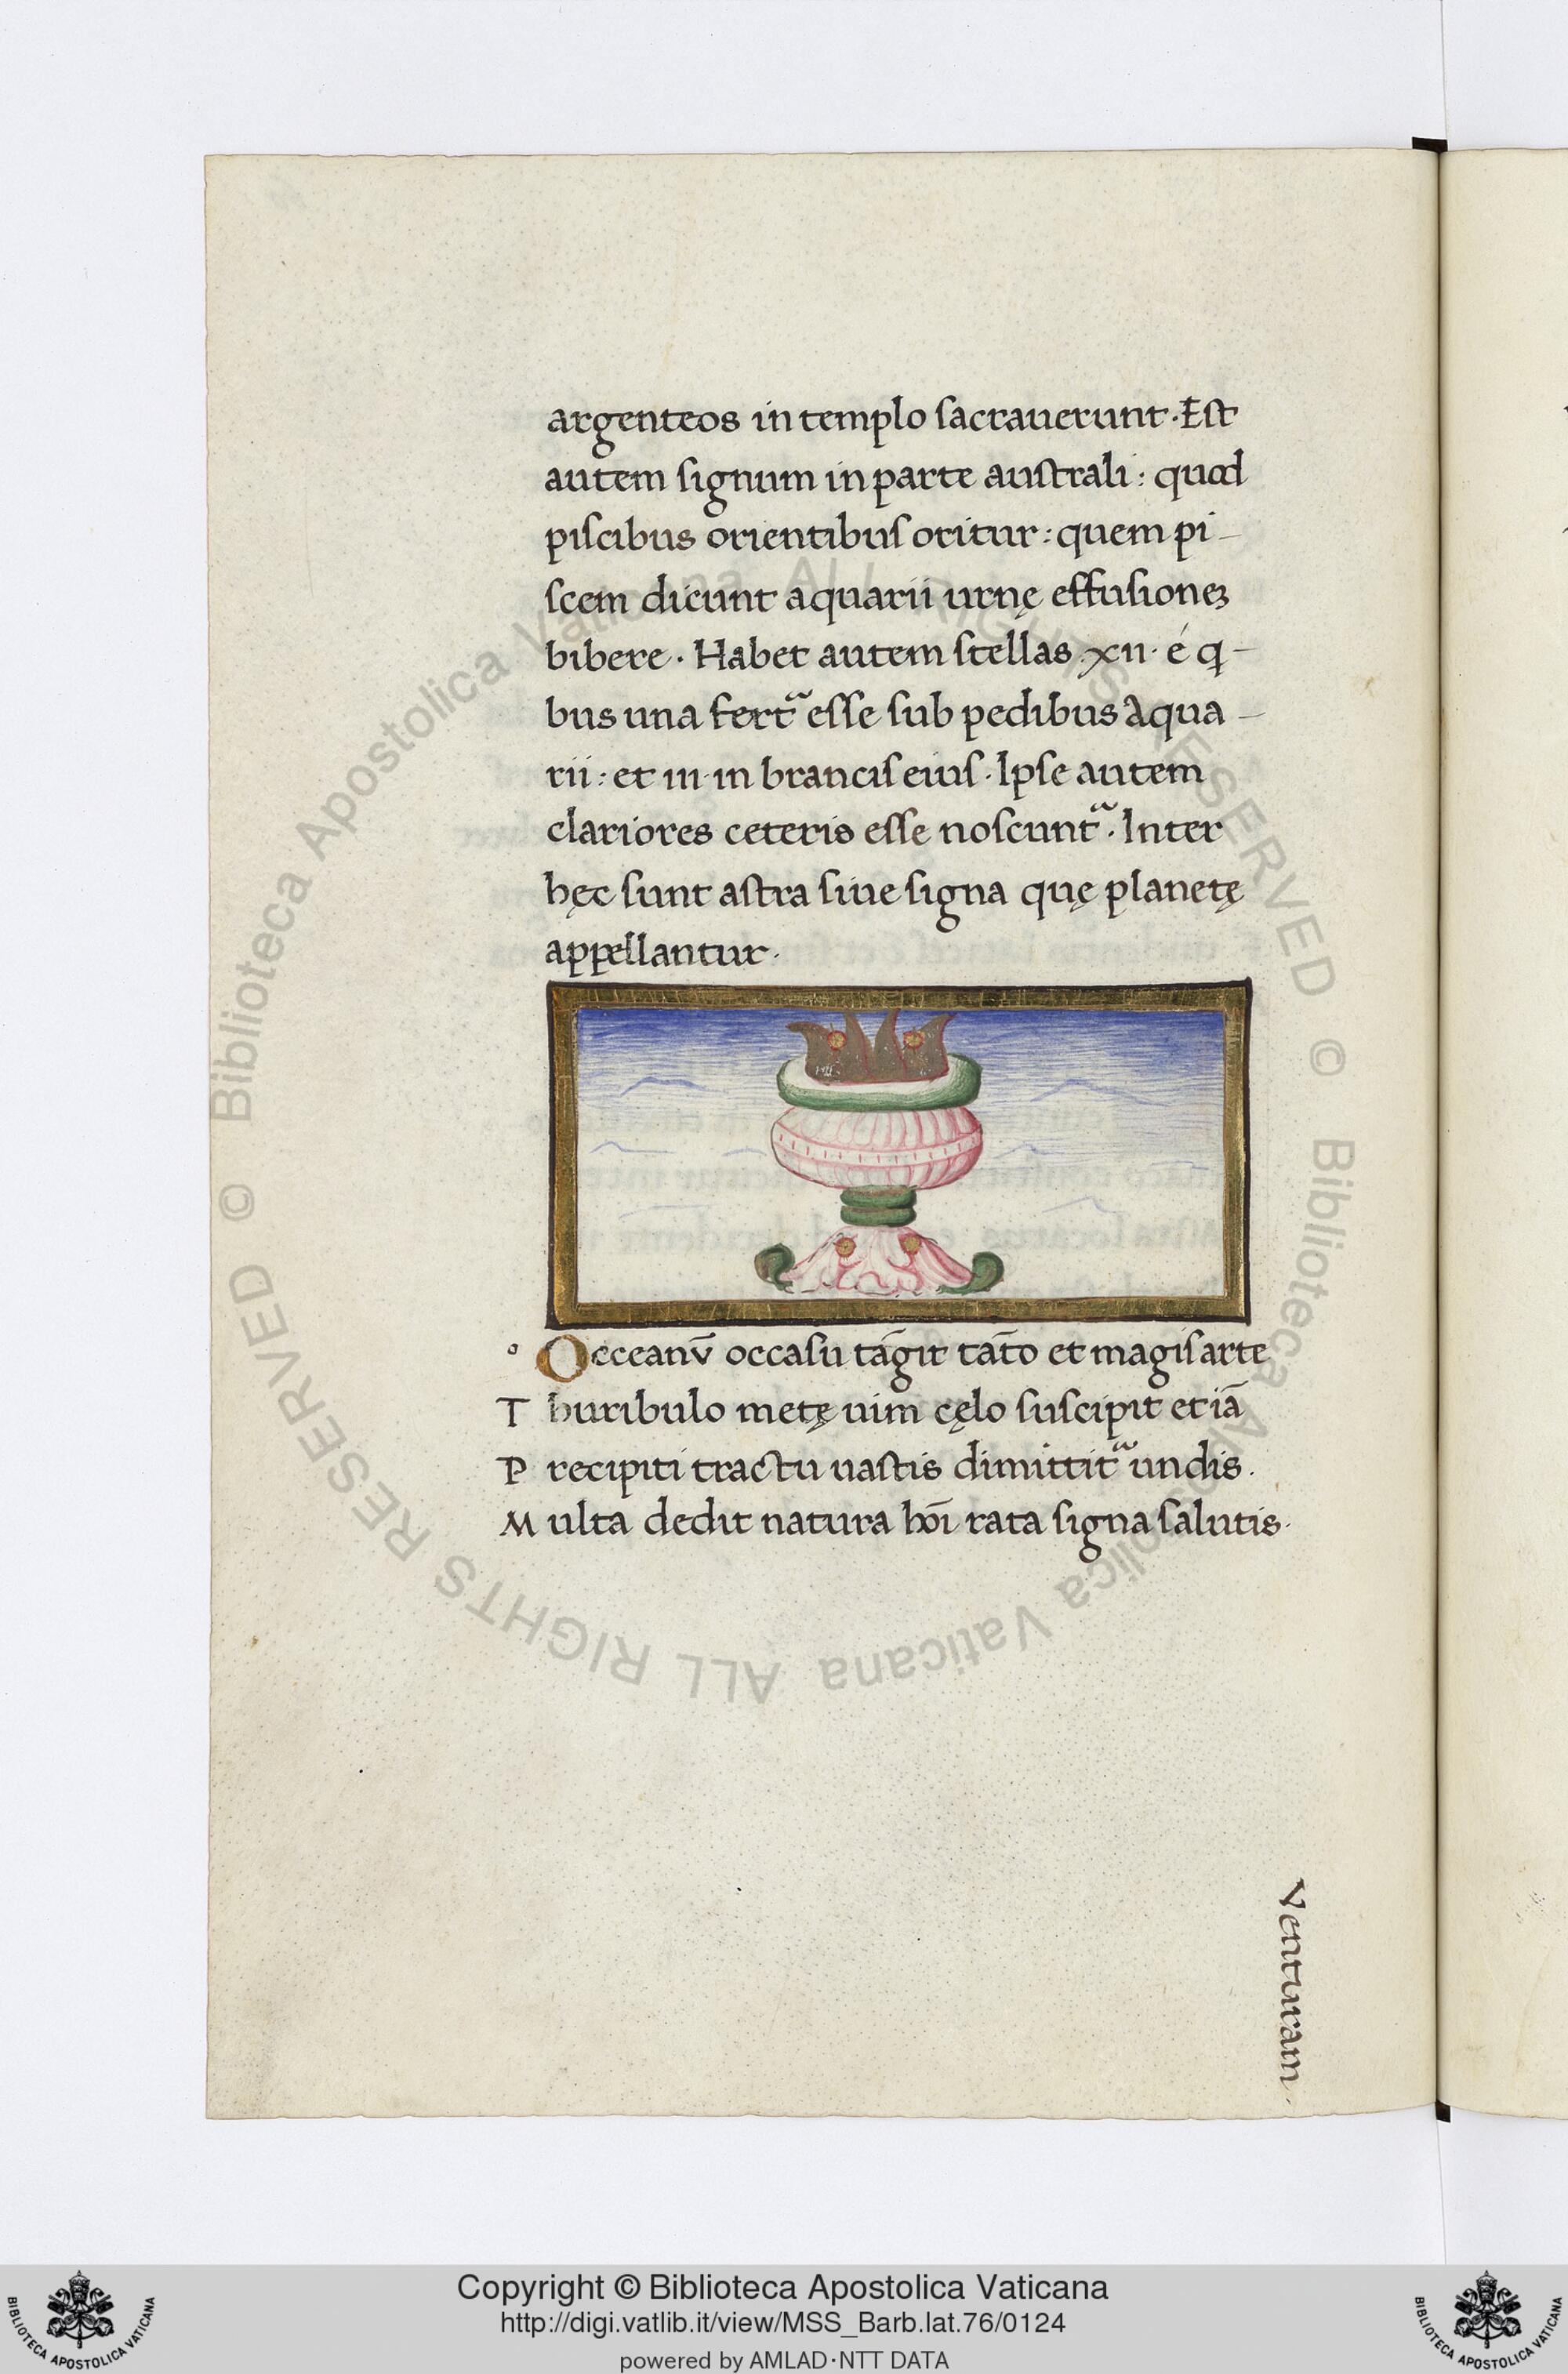 argenteos in templo sacrauerunt. Est
autem signum in parte australi: quod
piscibus orientibus oritur: quem pi-
scem dicunt aquarii urnę effusioneʒ
bibere. Habet autem stellas .xii. é q-
bus una fert᷑ esse sub pedibus Aqua-
rii: et iii. in brancis eius. Ipse autem
clariores ceteris esse noscunt᷑. Inter
hęc sunt astra siue signa quę planetę
appellantur.
o Occeanv̄ occasu tāgit tāto et magis arte
T huribulo metę uim cęlo suscipit etiā
P recipiti tractu uastis dimittit᷑ undis.
M ulta dedit natura hoī rata signa salutis.
Venturam
© Biblioteca Apostolica Vaticana ALL RIGHTS RESERVED © Biblioteca Apostolica Vaticana ALL RIGHTS RESERVED
Copyright © Biblioteca Apostolica Vaticana
http://digi.vatlib.it/view/MSS_Barb.lat.76/0124
powered by AMLAD·NTT DATA
BIBLIOTECA APOSTOLICA VATICANA
BIBLIOTECA APOSTOLICA VATICANA